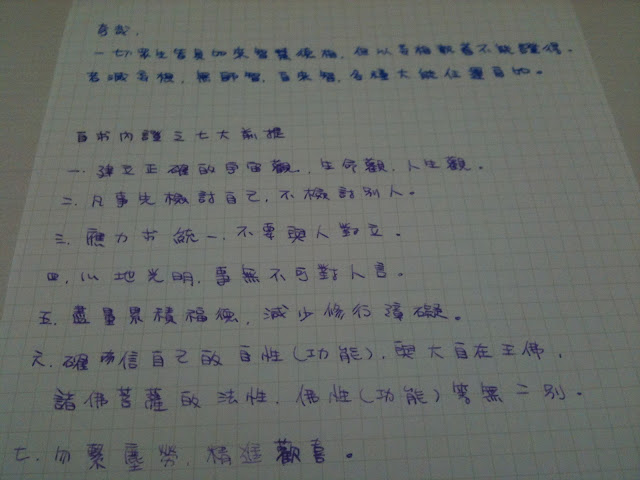 奇哉,
一切眾生皆具如來智慧德相,但以妄想執著不能證得。
若滅妄想,無師智,自來智,各種大能任運自如。
自求內證之七大前提
一.建立正確的宇宙觀,生命觀,人生觀。
二.凡事先檢討自己,不檢討別人。
三.應力求統一,不要與人對立。
四.心地光明,事無不可對人言。
五.盡量累積福德,減少修行障礙。
六.確信自己的自性(功能),與大自在王佛,
諸佛菩薩的法性,佛性(功能)等無二別。
七.勿繫塵勞,精進歡喜。